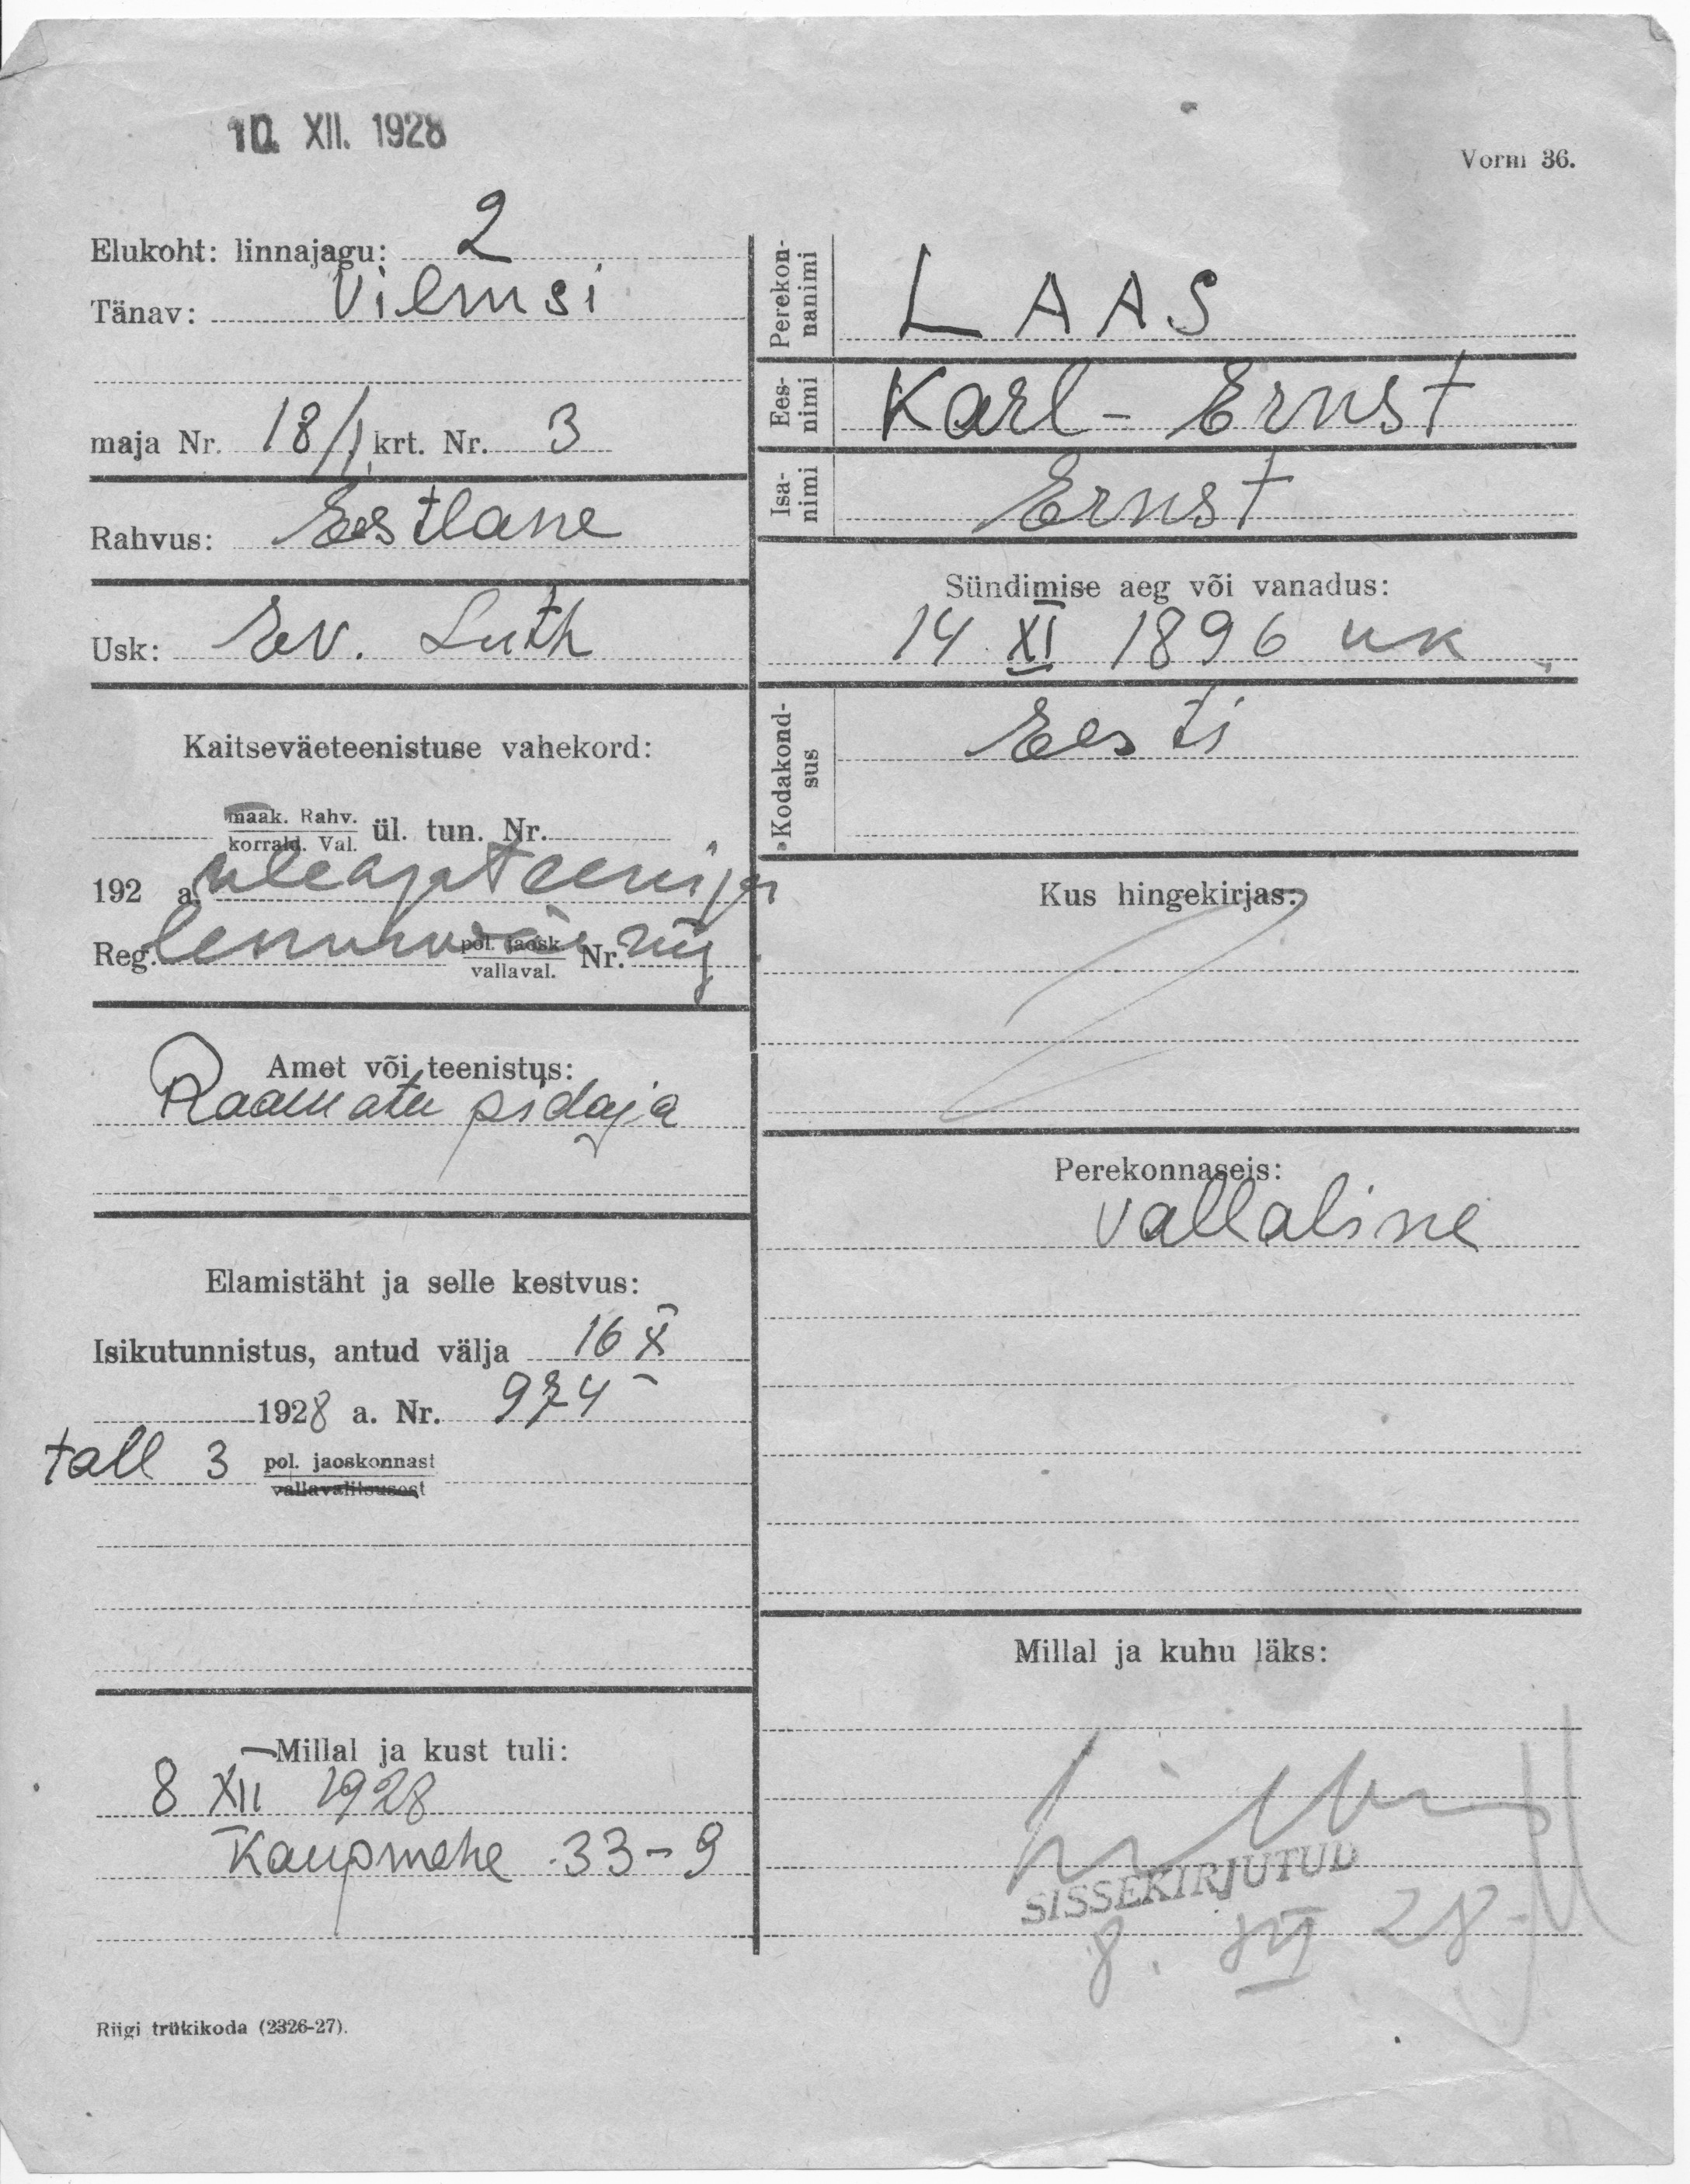 10. XII. 1928
Vorm 36.
Elukoht: linnajagu: 2
Tänav: Vilmsi
maja Nr. 18/1 krt. Nr. 3
Rahvus: Eestlane
Usk: Ev. Luth
Kaitseväeteenistuse vahekord:
maak. Rahv.
korrald. Val. ül. tun. Nr.
192 a. üleajateenija
Reg. lennuväe pol. jaosk. Nr. rüg
vallaval.
Amet või teenistus:
Raamatu pidaja
Elamistäht ja selle kestvus:
Isikutunnistus, antud välja 16 X
1928 a. Nr. 974
Tall 3 pol. jaoskonnast
vallavalitsusest
Millal ja kust tuli:
8 XII 1928
Kaupmehe 33-9
Riigi trükikoda (2326-27).
Perekonnanimi
LAAS
Eesnimi
Karl-Ernst
Isanimi
Ernst
Sündimise aeg või vanadus:
14 XI 1896 uk
Kodakondsus
Eesti
Kus hingekirjas:
Perekonnaseis:
vallaline
Millal ja kuhu läks:
SISSEKIRJUTUD
8. XII 28